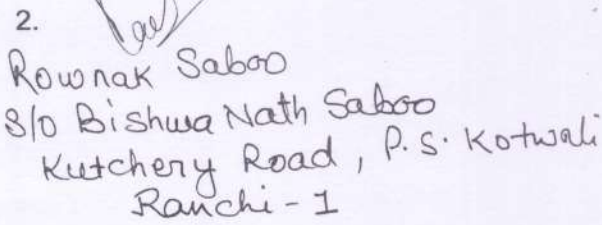 2.
Rownak Saboo
S/O Bishwa Nath Saboo
Kutchery Road, P.S. Kotwali
Ranchi - 1